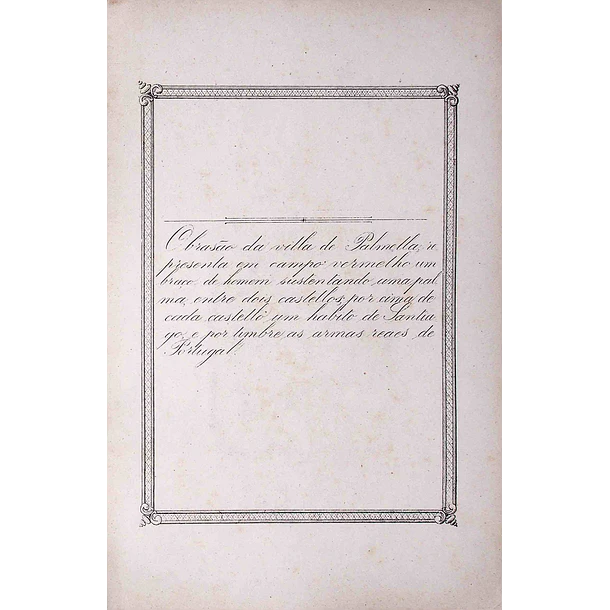 O brasão da villa de Palmella, re
presenta em campo vermelho um
braço de homem sustentando uma pal
ma, entre dois castellos, por cima de
cada castello um habito de Santia
go, e por timbre as armas reaes de
Portugal.